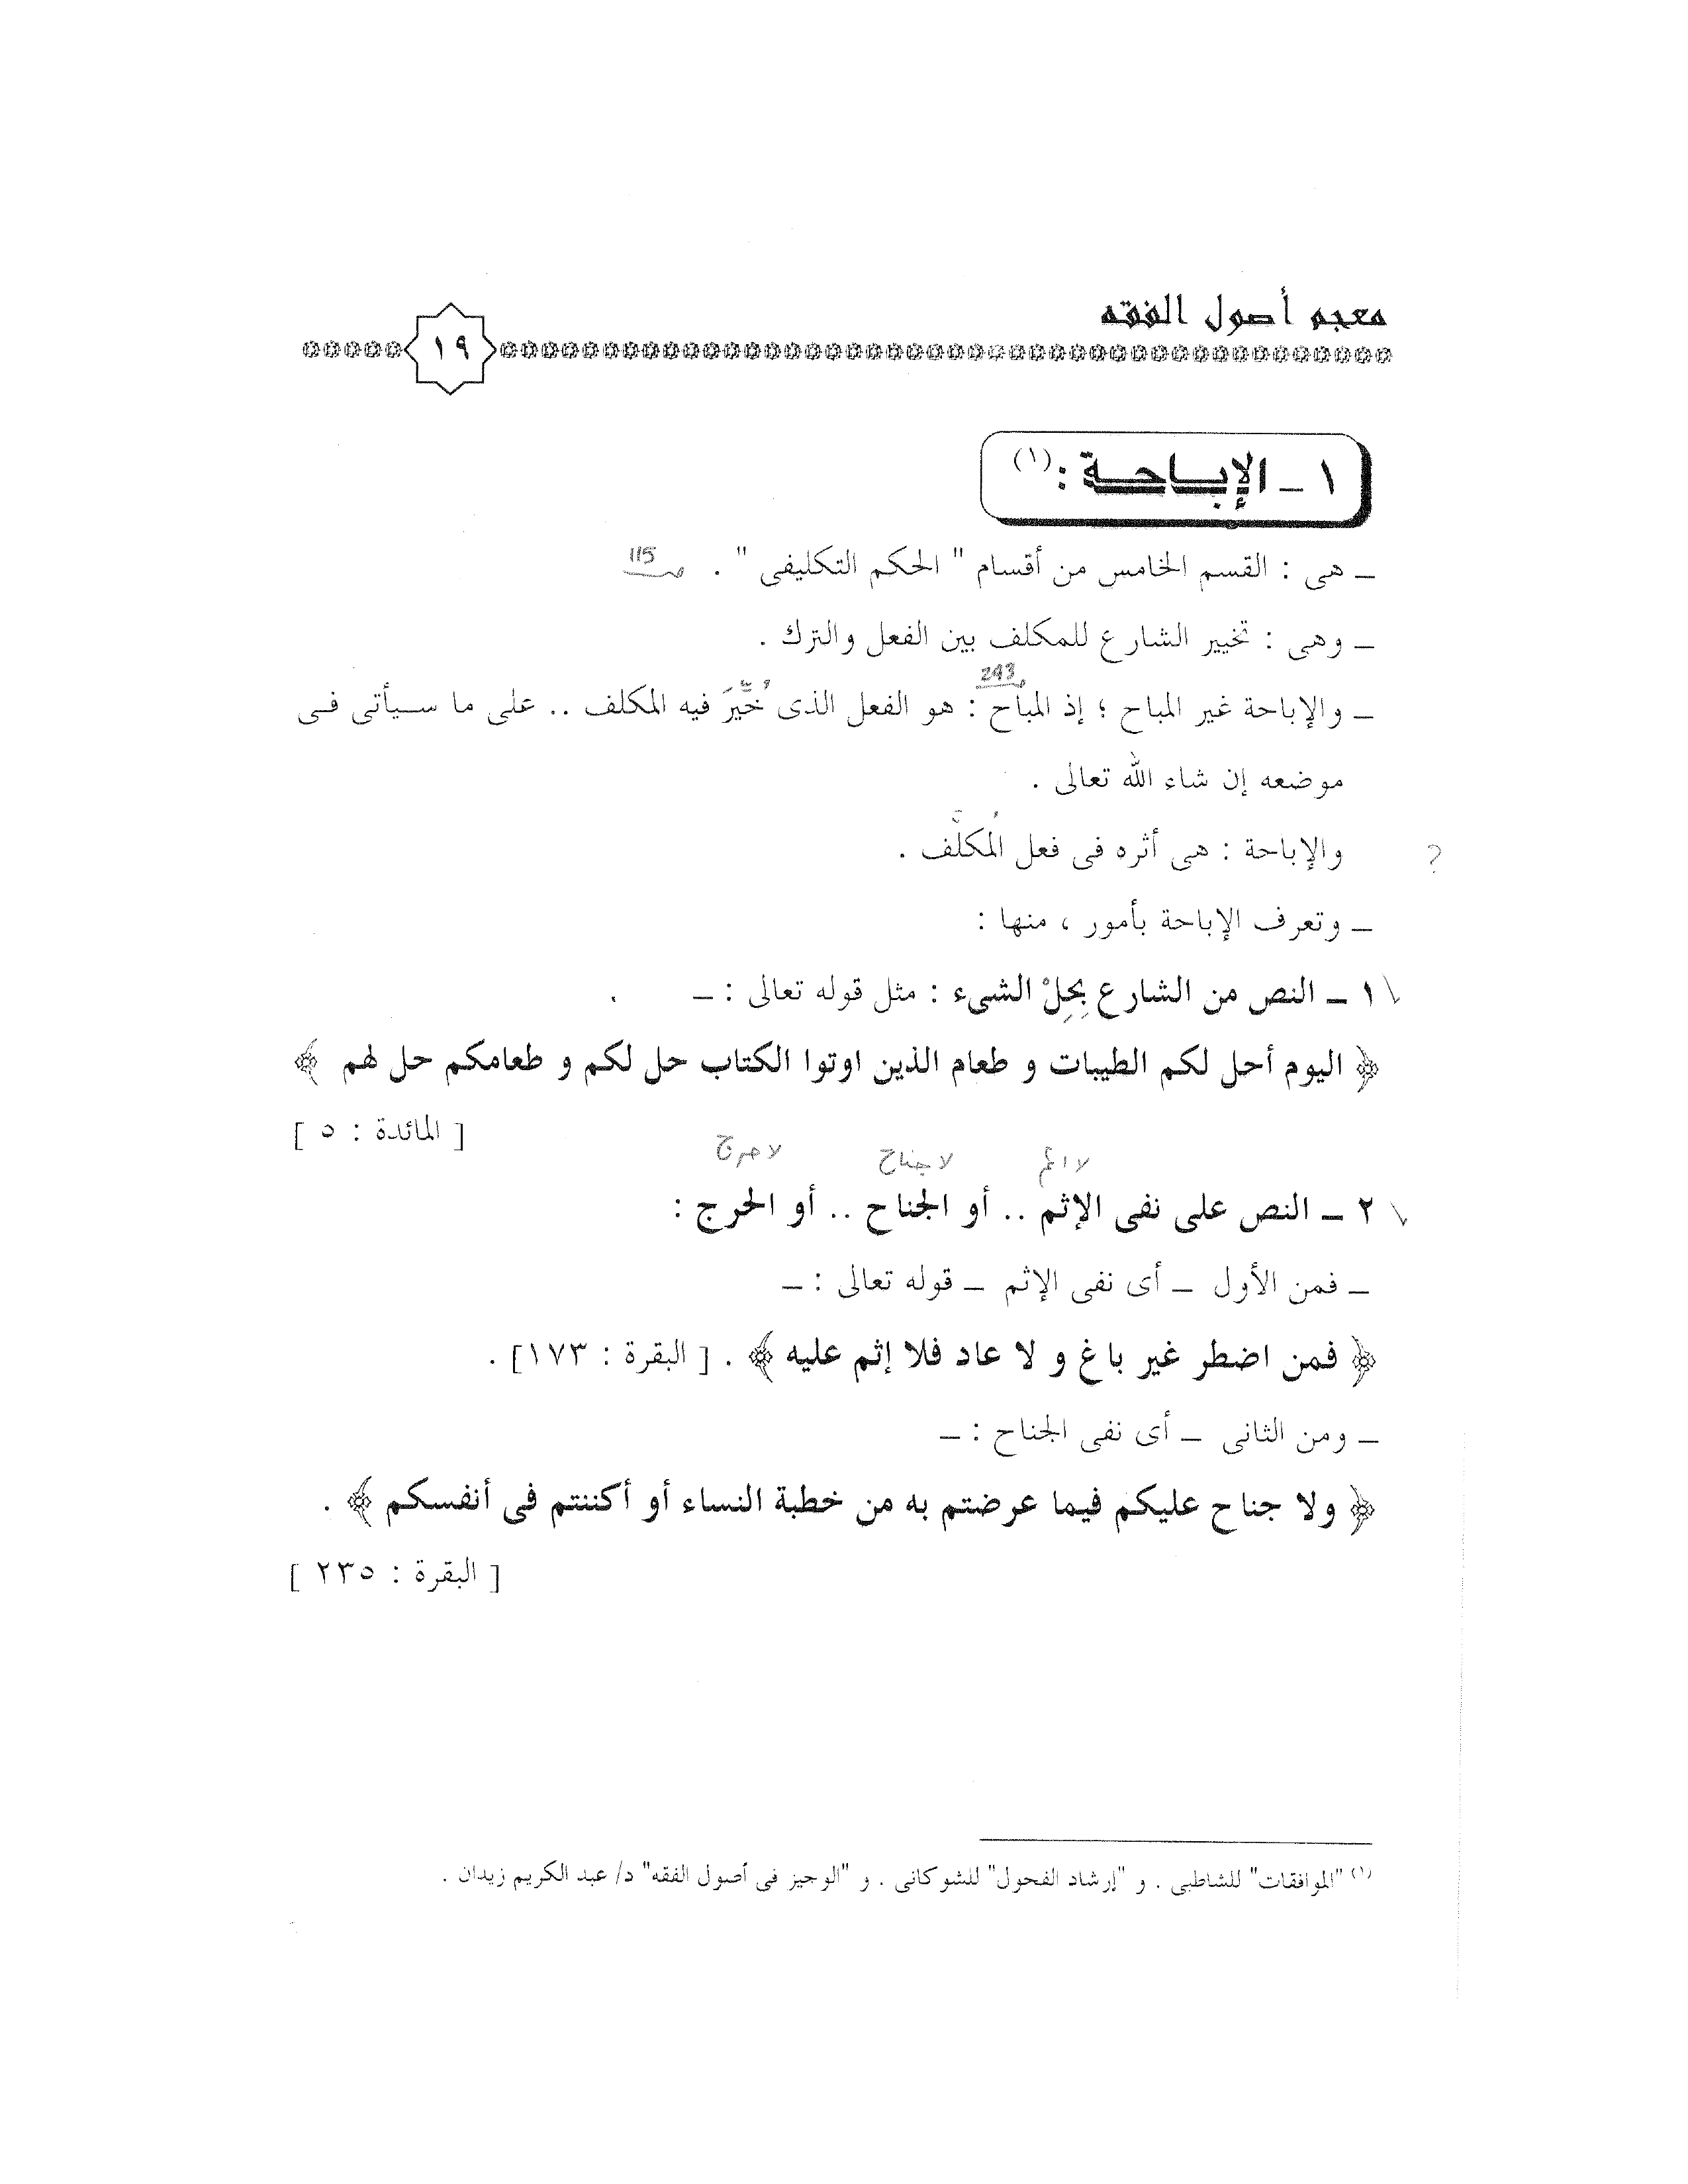 معجم أصول الفقه
١٩
١ ـ الإباحة : (١)
ـ هى : القسم الخامس من أقسام " الحكم التكليفى " . صـ 115
ـ وهى : تخيير الشارع للمكلف بين الفعل والترك .
صـ 243
ـ والإباحة غير المباح ؛ إذ المباح : هو الفعل الذى خُيِّرَ فيه المكلف .. على ما سيأتى فى
موضعه إن شاء الله تعالى .
والإباحة : هى أثره فى فعل المُكلَّف . ?
ـ وتعرف الإباحة بأمور ، منها :
١ ـ النص من الشارع بِحِلْ الشىء : مثل قوله تعالى : ـ
﴿ اليوم أحل لكم الطيبات و طعام الذين اوتوا الكتاب حل لكم و طعامكم حل لهم ﴾
[ المائدة : ٥ ]
لا اثم لا جناح لا حرج
٢ ـ النص على نفى الإثم .. أو الجناح .. أو الحرج :
ـ فمن الأول ـ أى نفى الإثم ـ قوله تعالى : ـ
﴿ فمن اضطر غير باغ و لا عاد فلا إثم عليه ﴾ . [ البقرة : ١٧٣] .
ـ ومن الثانى ـ أى نفى الجناح : ـ
﴿ ولا جناح عليكم فيما عرضتم به من خطبة النساء أو أكننتم فى أنفسكم ﴾ .
[ البقرة : ٢٣٥ ]
(١) "الموافقات" للشاطبى . و "إرشاد الفحول" للشوكانى . و "الوجيز فى أصول الفقه" د/ عبد الكريم زيدان .